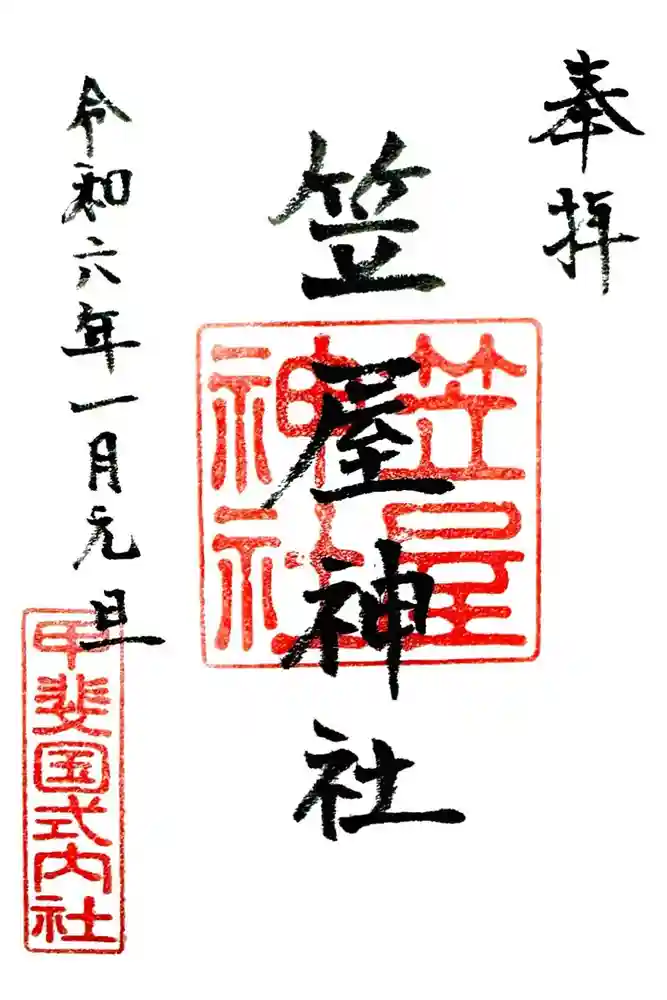 奉拝
笠屋神社
笠屋
神社
令和六年一月元旦
甲斐国式内社